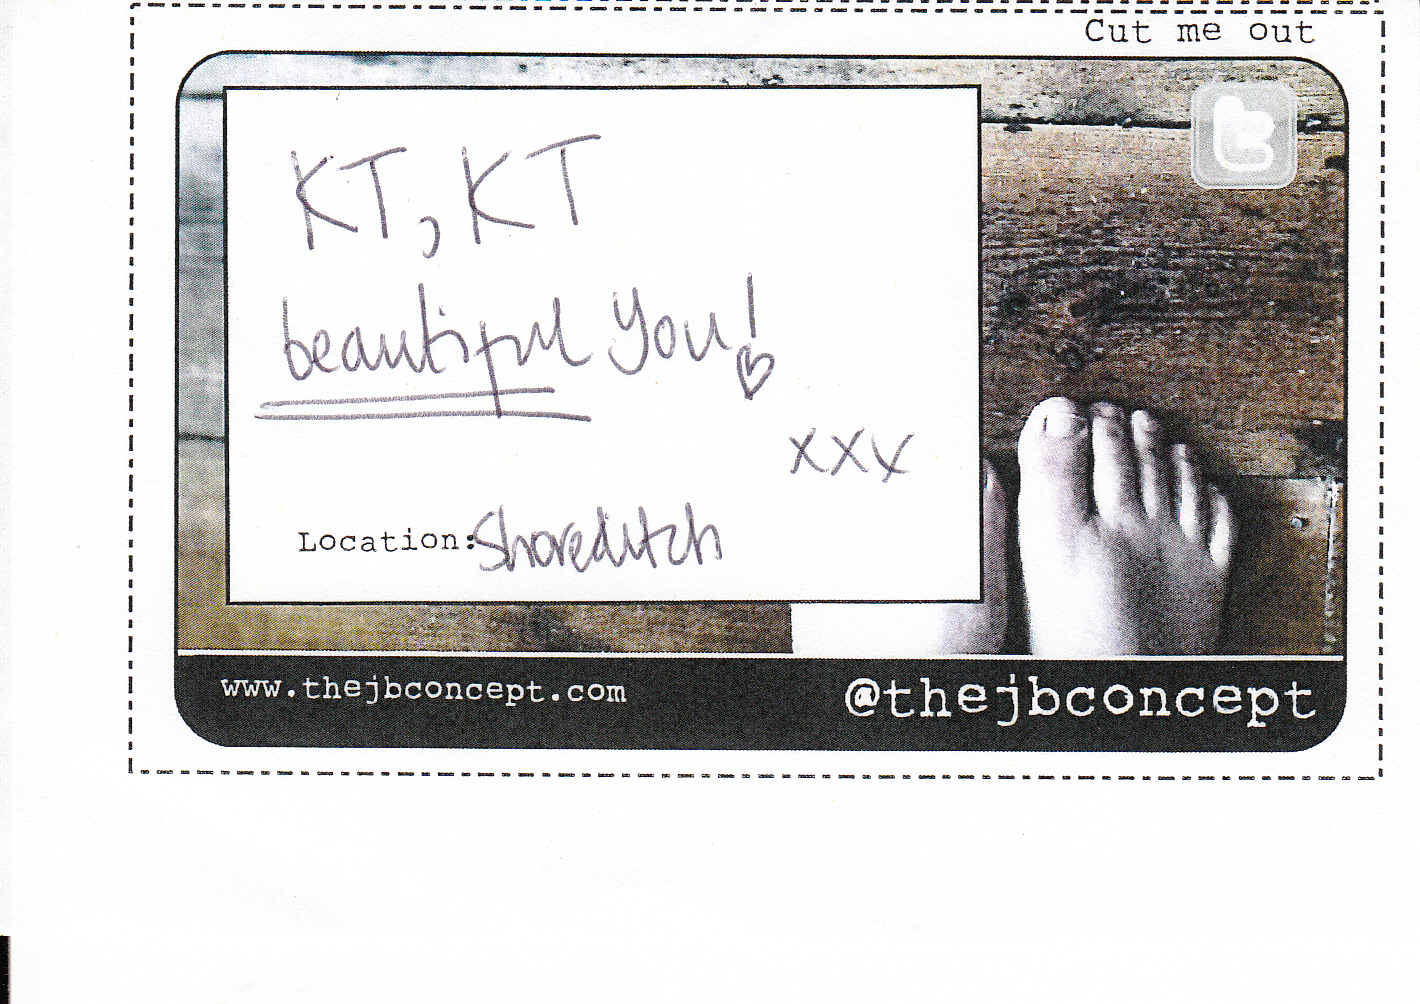 Cut me out
t
KT, KT
beautiful You!
xxx
Location: Shoreditch
www.thejbconcept.com
@thejbconcept